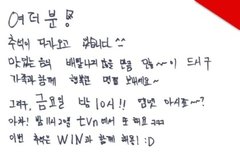 여더분!
추석이 다가오고 있습니다^^
맛있는 음식 배탈나지 않을 만큼 많~이 드시구
가족과 함께 행복한 명절 보내세요~
그리구, 금요일 밤 10시!! 엠넷 아시죠~?
아차! 밤 11시 20분 tvn에서 또 해요 ㅋㅋㅋ
이번 추석은 WIN과 함께 해욥! :D